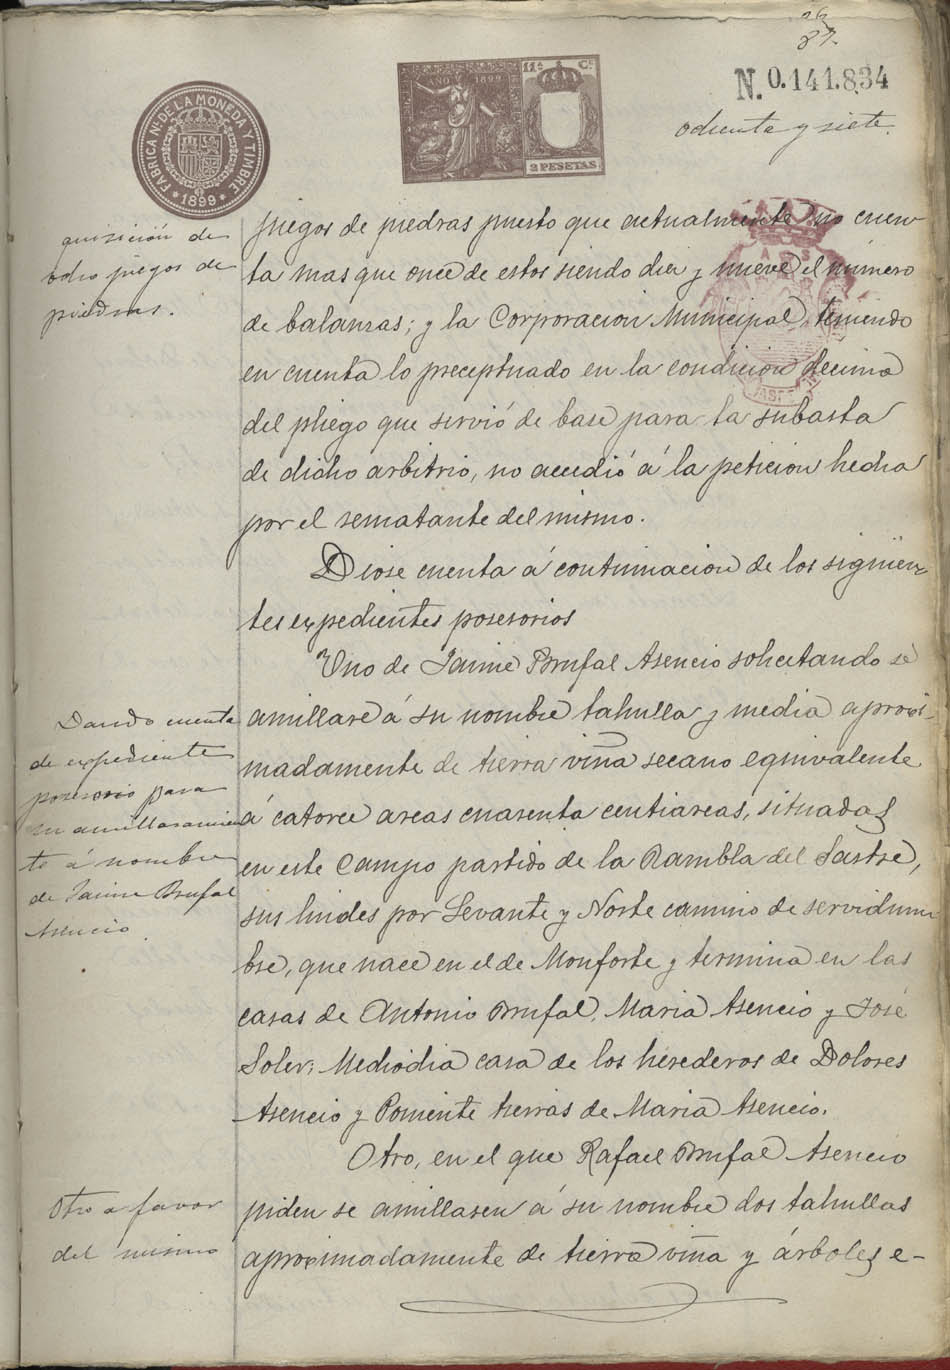 87.
N. 0.141.834
ochenta y siete.
FABRICA Nal. DE LA MONEDA Y TIMBRE
1899
AÑO 1899
11ª Cª
2 PESETAS
quisición de
ocho juegos de
piedras.
juegos de piedras puesto que actualmente no cuen-
ta mas que once de estos siendo diez y nueve el número
de balanzas; y la Corporacion Municipal, teniendo
en cuenta lo preceptuado en la condicion decima
del pliego que sirvió de base para la subasta
de dicho arbitrio, no accedió á la peticion hecha
por el rematante del mismo.
Diose cuenta á continuacion de los siguien-
tes expedientes posesorios
Uno de Jaime Brufal Asencio solicitando se
Dando cuenta
de expediente
posesorio para
su amillaramien
to á nombre
de Jaime Brufal
Asencio
amillare á su nombre tahulla y media aproxi-
madamente de tierra viña secano equivalente
á catorce areas cuarenta centiareas, situadas
en este Campo partido de la Rambla del Sastre,
sus lindes por Levante y Norte camino de servidum
bre, que nace en el de Monforte y termina en las
casas de Antonio Brufal, Maria Asencio y José
Soler; Mediodia casa de los herederos de Dolores
Asencio y Poniente tierras de Maria Asencio.
Otro, en el que Rafael Brufal Asencio
Otro a favor
del mismo
piden se amillaren á su nombre dos tahullas
aproximadamente de tierra viña y árboles e-